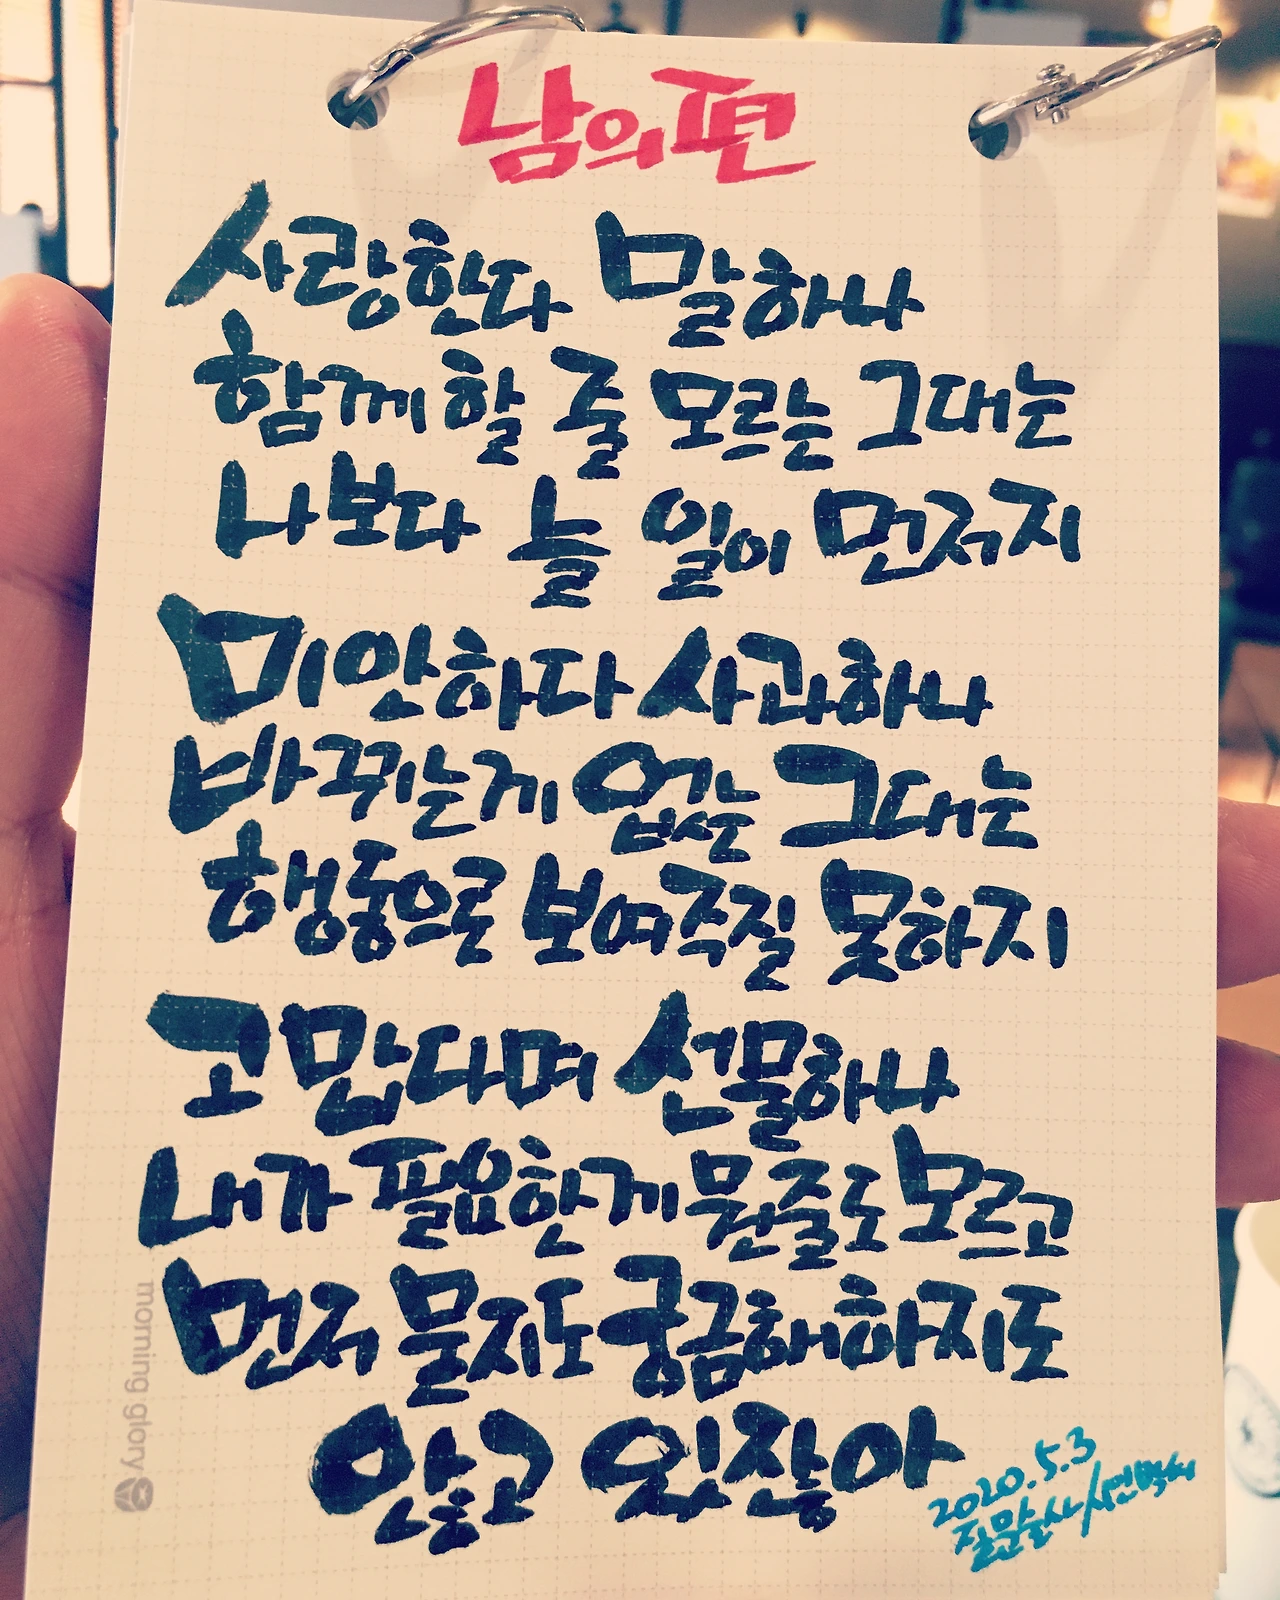 남의편
사랑한다 말하나
함께 할 줄 모르는 그대는
나보다 늘 일이 먼저지
미안하다 사과하나
바뀌는게 없는 그대는
행동으로 보여주질 못하지
고맙다며 선물하나
내가 필요한게 뭔줄도 모르고
먼저 묻지도 궁금해하지도
않고 있잖아
2020.5.3
morning glory